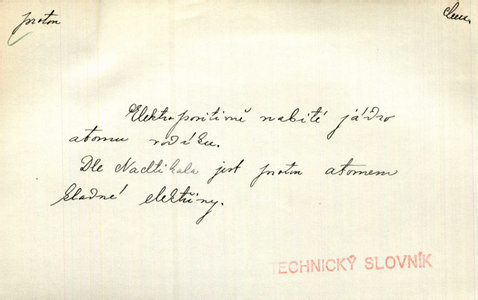 proton
Chem.
Elektropositivně nabité jádro
atomu vodíku.
Dle Nadtikala jest proton atomem
kladné elektřiny.
TECHNICKÝ SLOVNÍK